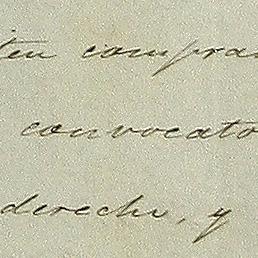 ten compra
convocato
derecho, y